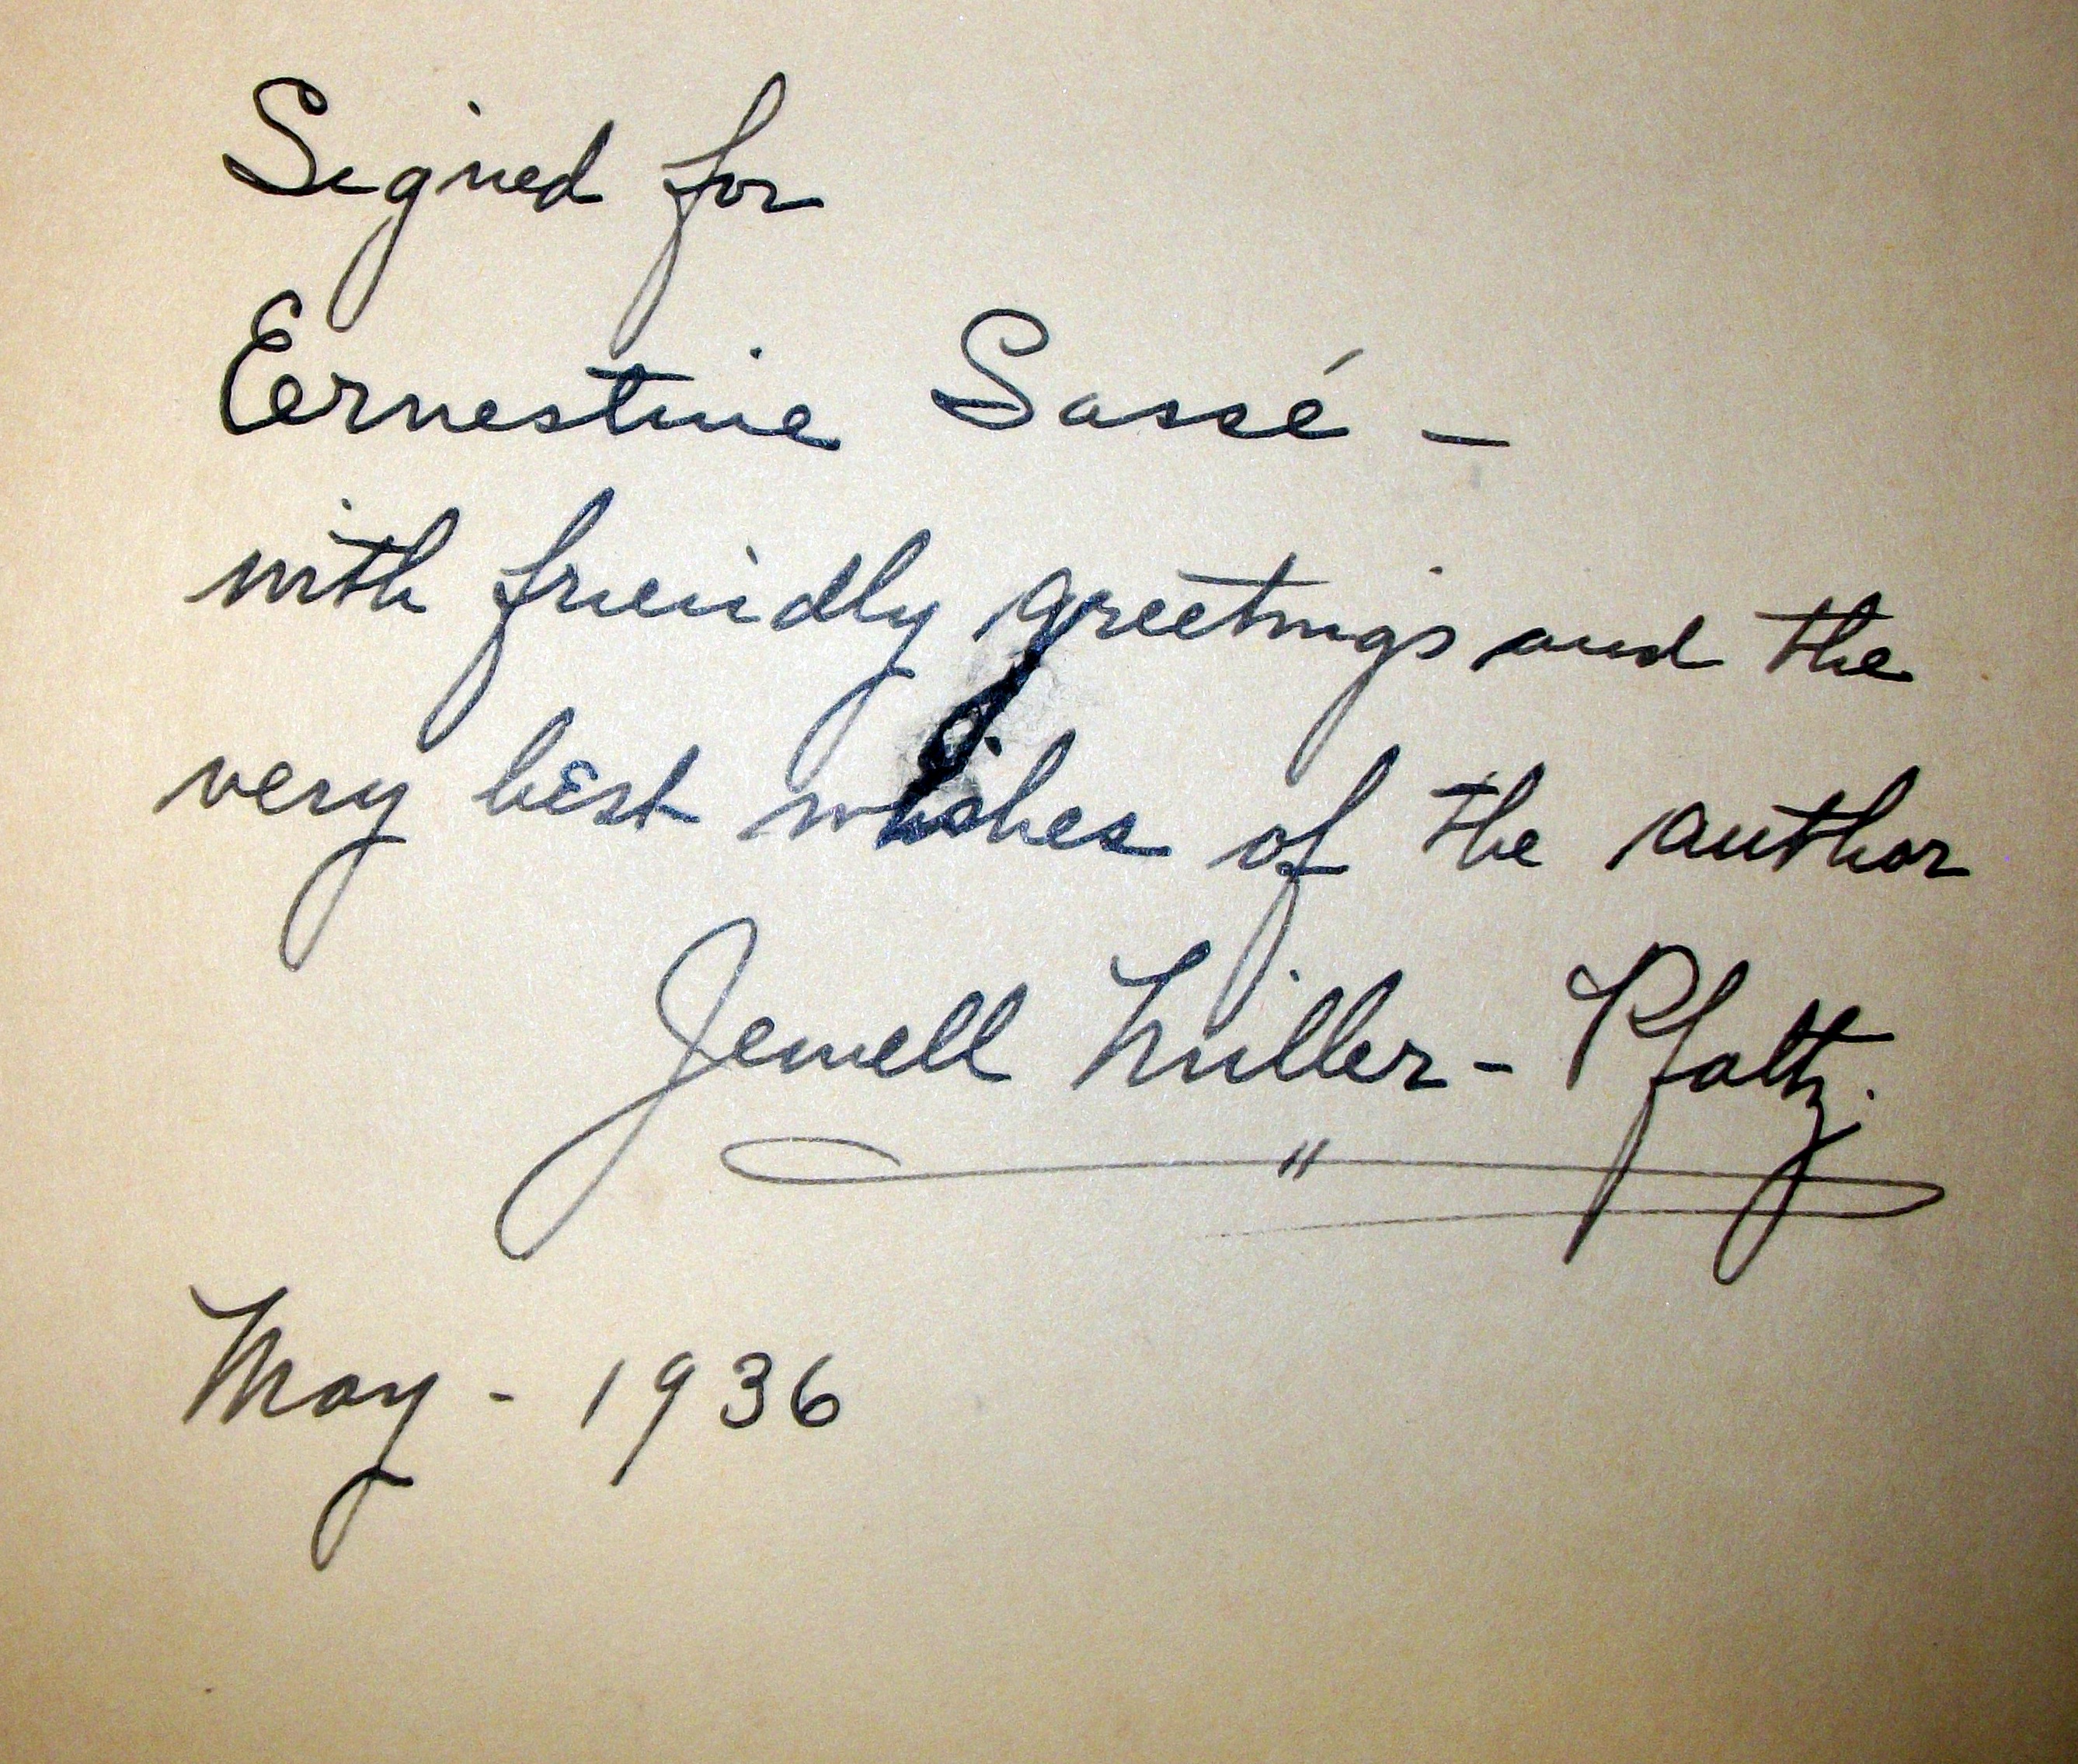 Signed for
Ernestine Sassé –
with friendly greetings and the
very best wishes of the author
Jewell Miller – Pfaltz.
"
May - 1936